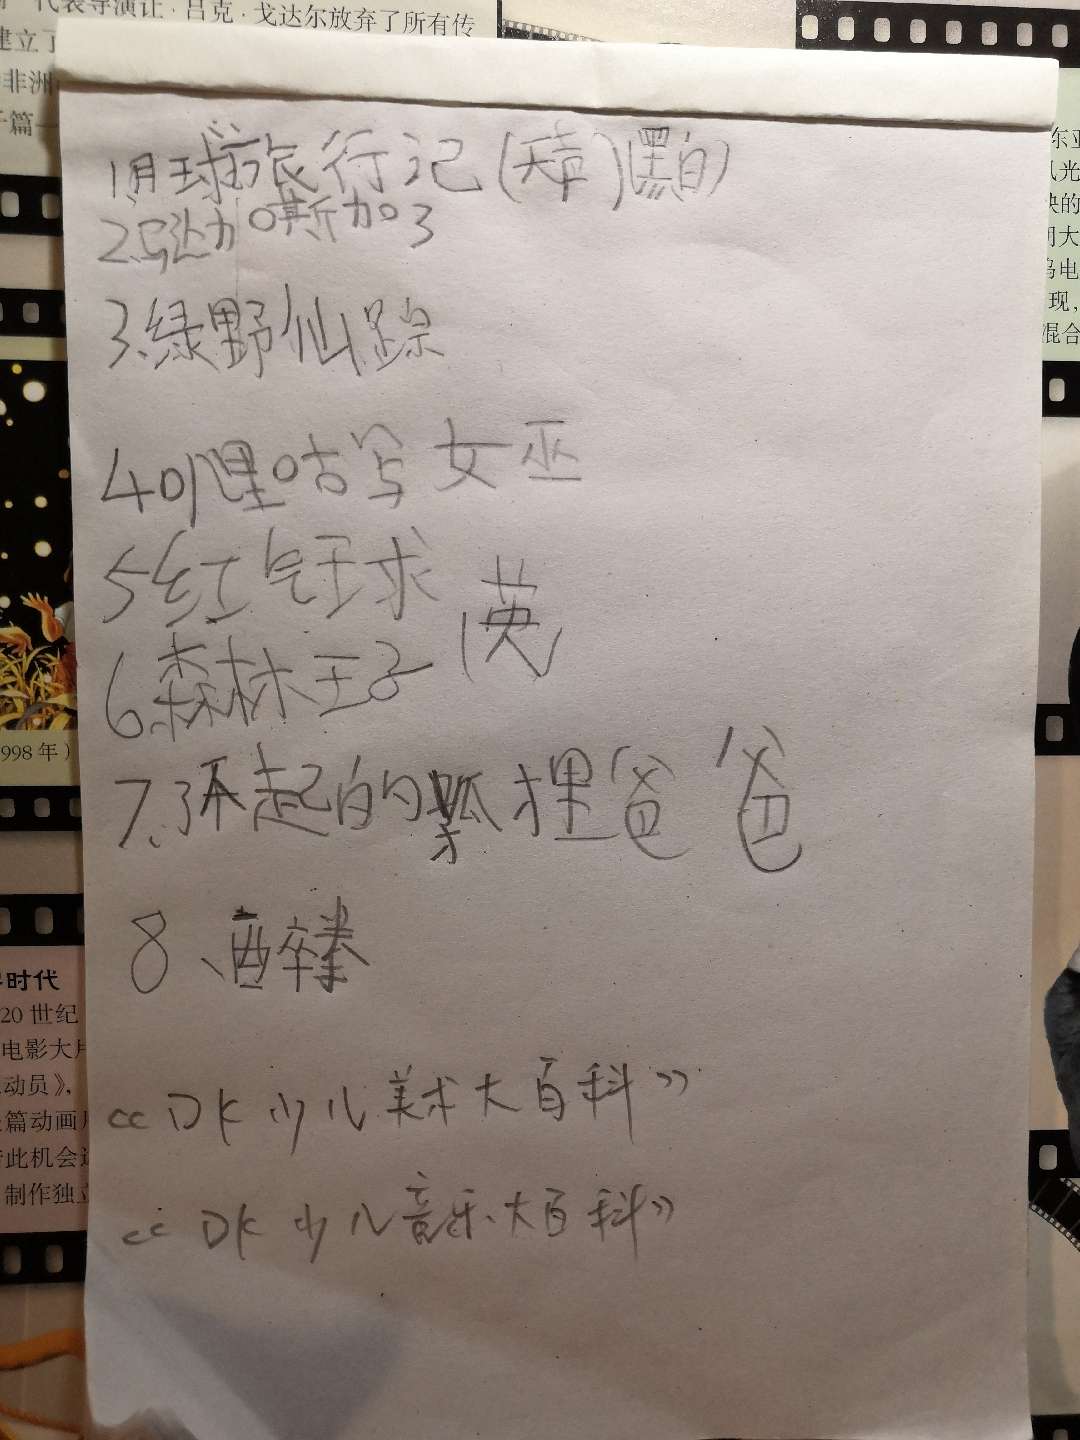 代表导演让·吕克·戈达尔放弃了所有传
建立了
非洲
篇一
1.月球旅行记(无声)(黑白)
2.马达加斯加3
3.绿野仙踪
4叽哩咕与女巫
5红气球
6.森林王子(英)
7.了不起的狐狸爸爸
8、醉拳
《DK少儿美术大百科》
《DK少儿音乐大百科》
998年）
时代
20世纪
电影大片
动员》，
篇动画片
此机会
制作独立
东亚
风光
快的
大
乌电
现，
混合